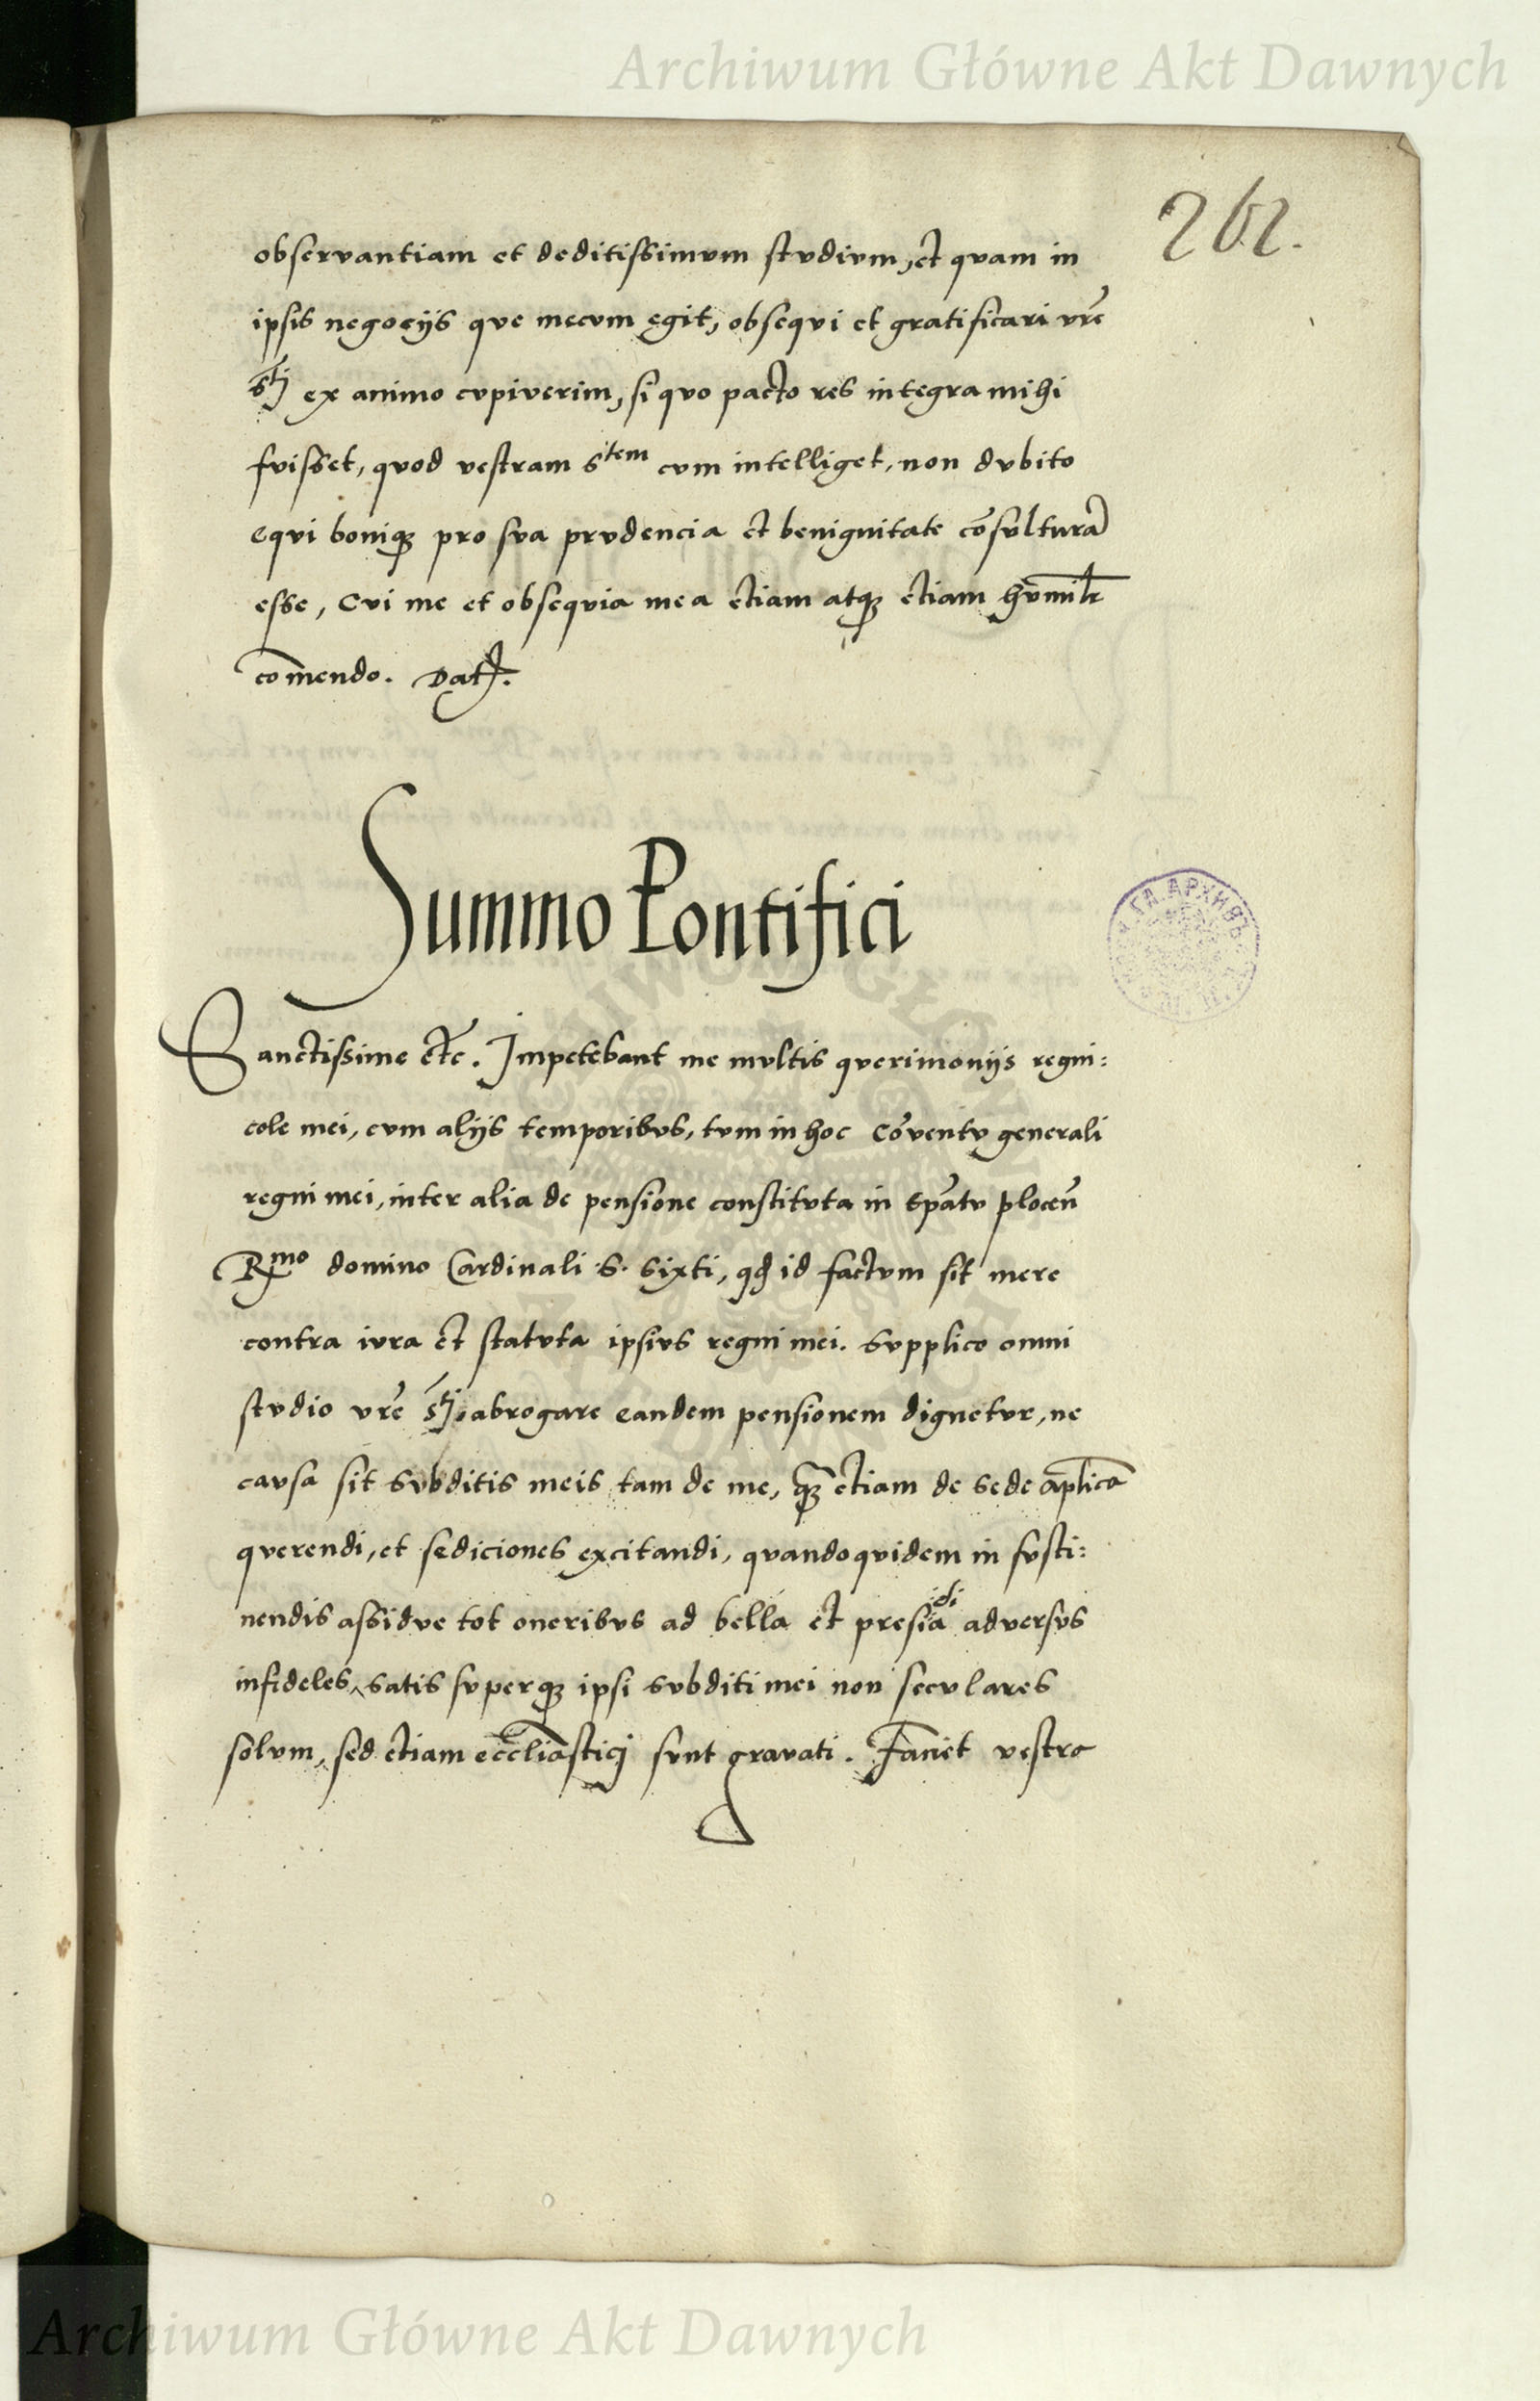 Archiwum Główne Akt Dawnych
262.
observantiam et deditissimum studium, et quam in
ipsis negocijs que mecum egit, obsequi et gratificari vrē
Sti ex animo cupiverim, si quo pacto res integra mihi
fuisset, quod vestram Stem cum intelliget, non dubito
equi boniqꝫ pro sua prudencia et benignitate cōsulturā
esse, Cui me et obsequia mea etiam atqꝫ etiam humilr̄
com̄endo. Dat.
Summo Pontifici
Sanctissime etc̄. Impetebant me multis querimonijs regni:
cole mei, cum alijs temporibus, tum in hoc Cōventu generali
regni mei, inter alia de pensione constituta in Ep̄atu plocen̄
Rmo domino Cardinali .S. Sixti, qd id factum sit mere
contra iura et statuta ipsius regni mei. Supplico omni
studio vrē Sti, abrogare eandem pensionem dignetur, ne
causa sit subditis meis tam de me, qꝫ etiam de sede ap̄lica
querendi, et sediciones excitandi, quandoquidem in susti:
nendis assidue tot oneribus ad bella et presidia adversus
infideles, satis superqꝫ ipsi subditi mei non seculares
solum, sed etiam eccliāstici sunt gravati. Faciet vestra
Archiwum Główne Akt Dawnych